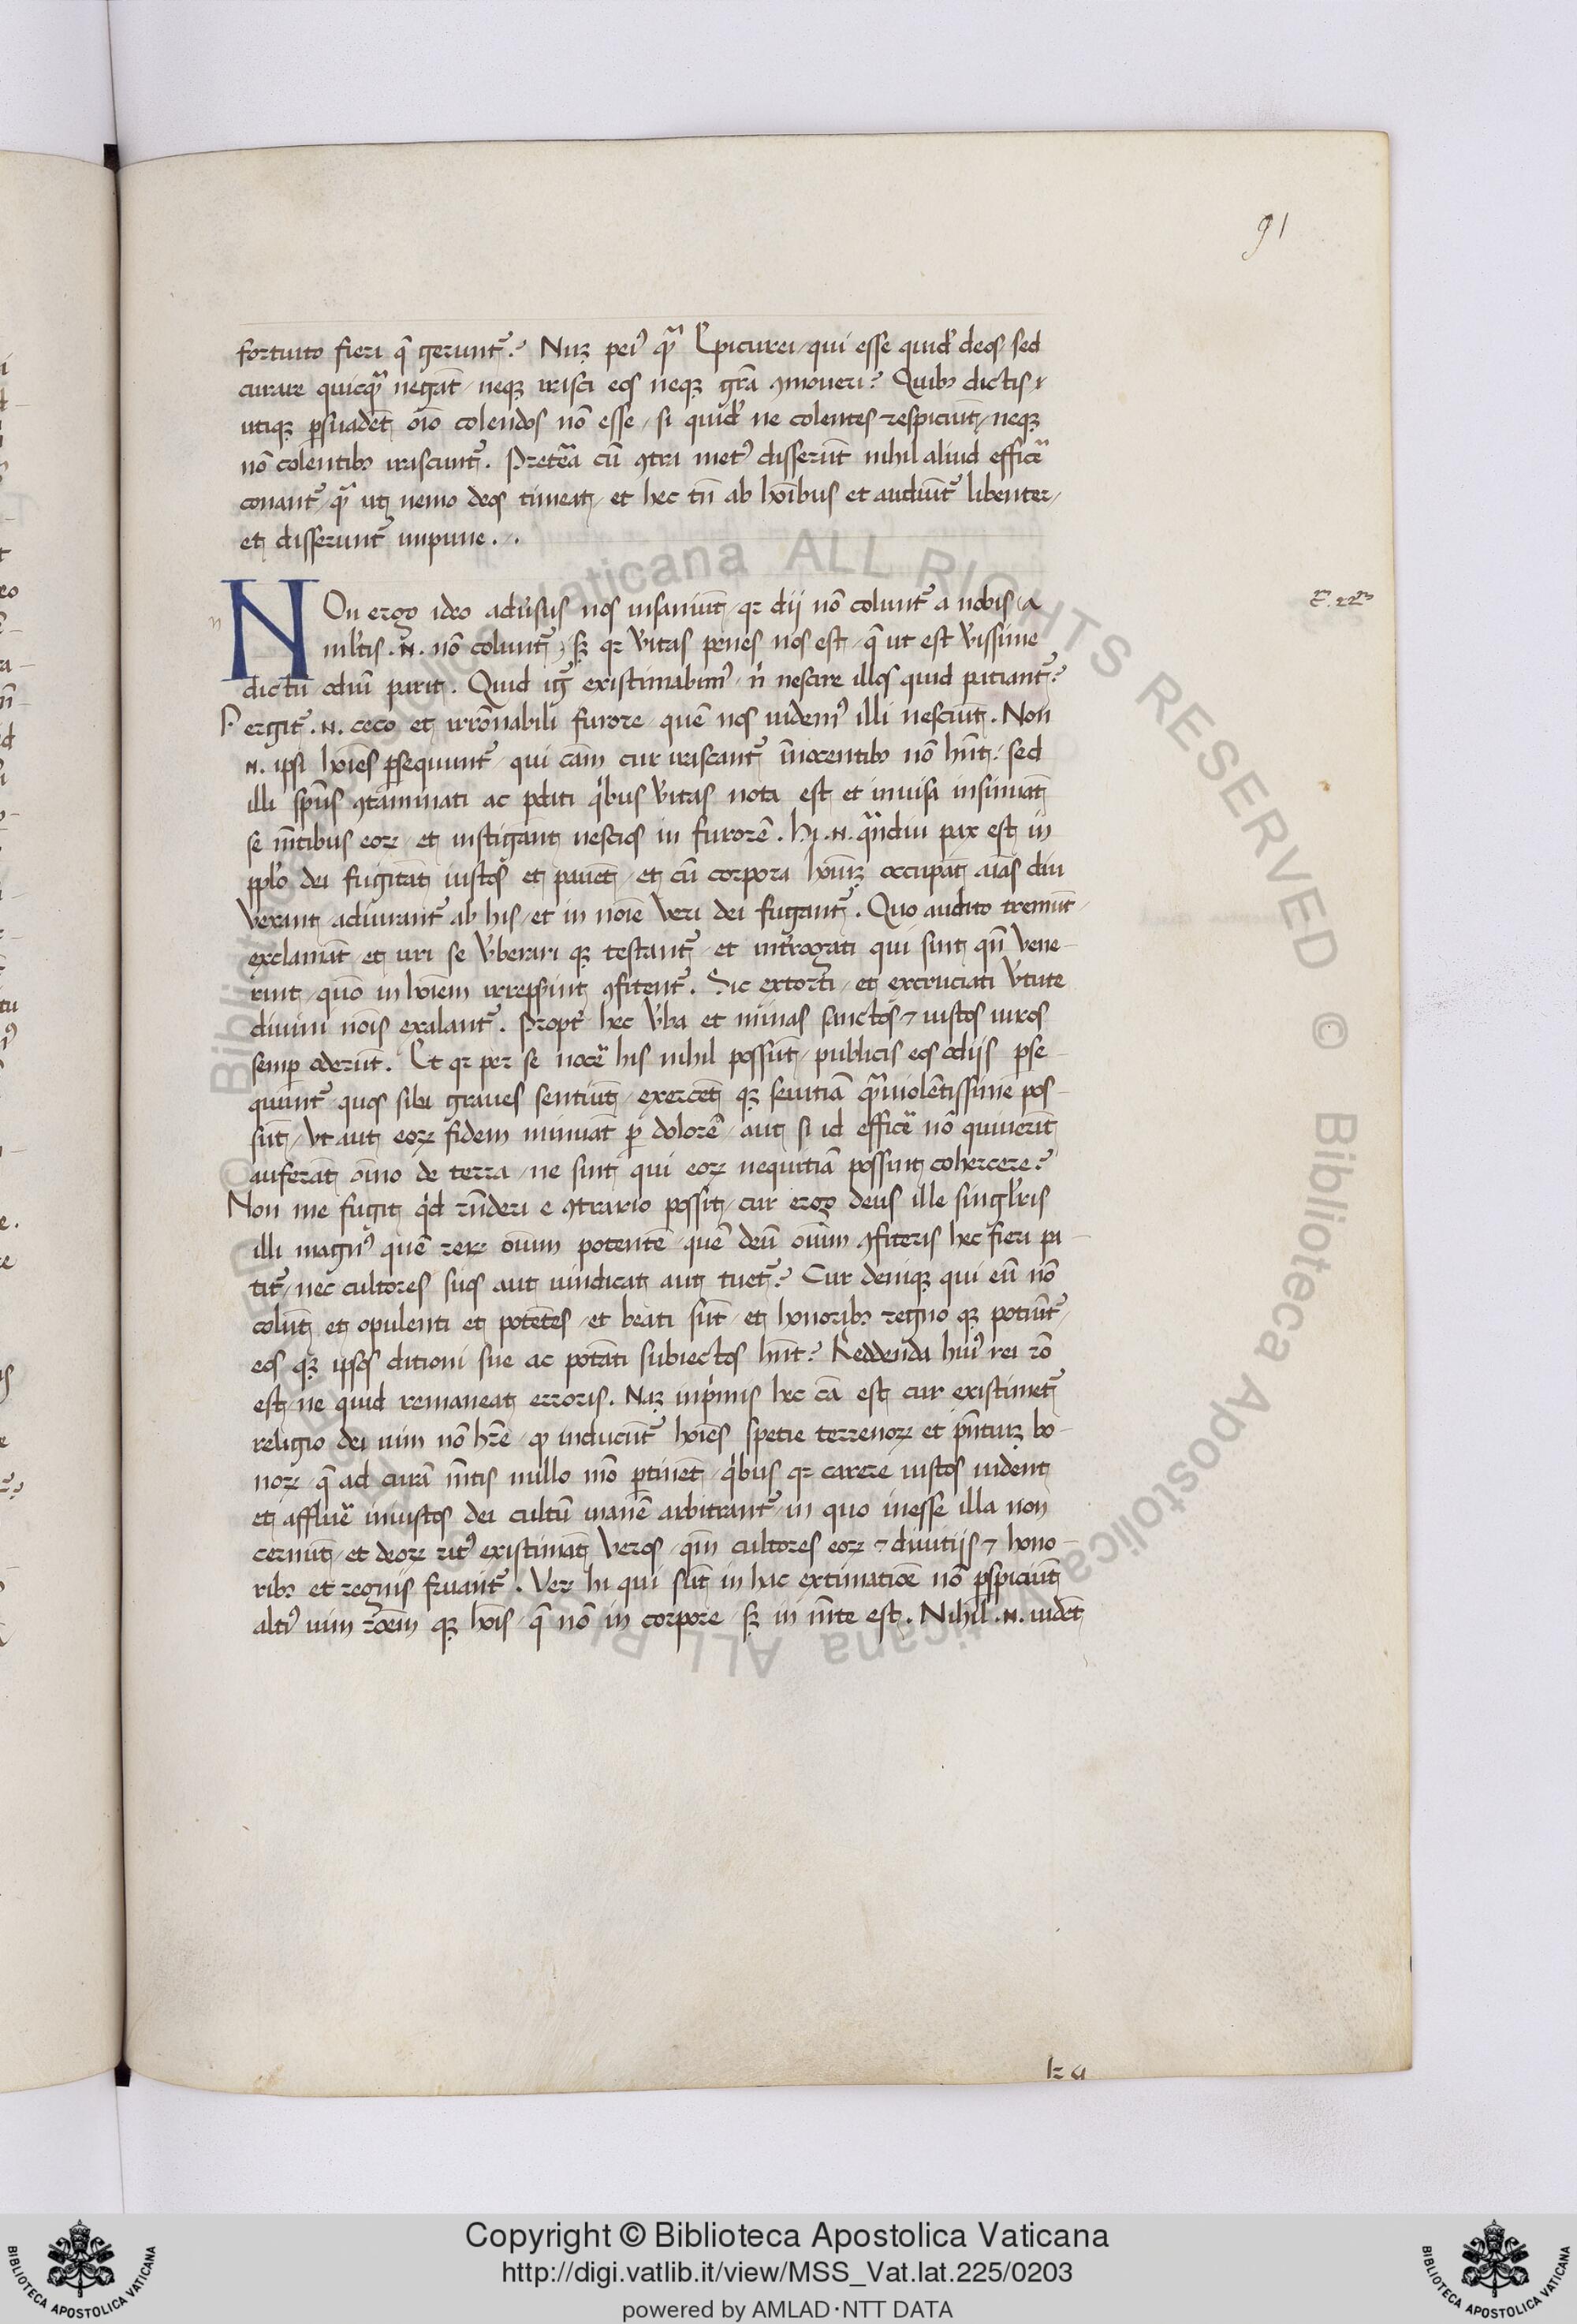 91
fortuito fieri q̄ gerunt᷑? Nūꝫ pei᷒ qᷓ Epicurei / qui esse quid᷒ deos / sed
curare quicqᷓ negāt / neqꝫ irasci eos neqꝫ gr̄a ꝯmoveri? Quibꝰ dictis
utiqꝫ ꝑsuadēt oīo colendos nō esse / si quid᷒ ne colentes respiciūt / neqꝫ
nō colentibꝰ irascunt᷑. Pretēa cū ꝯtra met᷒ disserūt nihil aliud efficē
conant᷑ / qᷓ ut nemo deos timeat / et hec tn̄ ab hoībus et audiūt᷑ libenter /
et disserunt᷑ impune.
n
NOn ergo ideo adv̓sus nos insaniūt / qꝛ dij nō colunt᷑ a nobis / a
ml̓tis .n. nō colunt᷑ / sꝫ qꝛ v̓itas penes nos est / q̄ ut est v̓issime
c. 22
dictū odiū parit. Quid ig̓ existimabim᷒ / n̓ nescire illos quid patiant᷑?
Pergit᷑ .n. ceco et irrōnabili furore / quē nos videm᷒ illi nesciūt. Non
.n. ipsi hoīes ꝑsequunt᷑ / qui cām cur irascant᷑ īnocentibꝰ nō hn̄t / sed
illi sp̄us ꝯtaminati ac ꝑditi q̓bus v̓itas nota est et invisa insinuāt
se mētibus eoꝝ / et instigant nescios in furorē. Hi .n. qᷓndiu pax est in
ppl̓o dei fugitāt iustos et pavēt / et cū corpora hoīuꝫ occupāt aīas diu
verant adiurant᷑ ab his / et in noīe veri dei fugant᷑. Quo audito tremūt /
exclamāt / et uri se v̓berari qꝫ testant᷑ / et int̓rogati qui sint / qn̄ vene-
rint / quō in hoīem irrepserint ꝯfitent᷑. Sic extorti / et excruciati v̓tute
divini noīs exalant᷑. Propt̓ hec v̓ba et minas sanctos ⁊ iustos viros
semꝑ oderūt. Et qꝛ per se nocē his nihil possūt / publicis eos odijs ꝑse-
quunt᷑ quos sibi graves sentiūt / exercēt qꝫ sevitiā qᷓviolētissime pos-
sūt / ut aut eoꝝ fidem minuāt ꝑ dolorē / aut si id efficē nō quiverīt
auferāt oīno de terra / ne sint qui eoꝝ nequitiā possint cohercere?
Non me fugit q̓d rn̄deri e ꝯtrario possit / cur ergo deus ille singl̓ris
ille magn᷒ quē reꝝ oīum potentē / quē deū oīum ꝯfiteris hec fieri pa-
tit᷑ / nec cultores suos aut vindicat aut tuet᷑? Cur deniqꝫ qui eū nō
colūt et opulenti et potētes / et beati sūt / et honoribꝰ regno qꝫ potiūt᷑ /
eos qꝫ ipsos ditioni sue ac potāti subiectos hn̄t? Reddenda hui᷒ rei rō
est / ne quid remaneat erroris. Nāꝫ inp̓mis hec cā est cur existimet᷑
religio dei vim nō hr̄e / qꝙ inducūt᷑ hoīes spetie terrenoꝝ et pn̄tiuꝫ bo-
noꝝ / q̄ ad curā mētis nullo mō ꝑtinēt / q̓bus qꝛ carere iustos vident
et affluē iniustos dei cultū inanē arbitrant᷑ / in quo inesse illa non
cernūt / et deoꝝ rit᷒ existimāt veros / qm̄ cultores eoꝝ ⁊ divitijs ⁊ hono-
ribꝰ et regnis fruant᷑. Veꝝ hi qui sūt in hac extimatiōe nō ꝑspiciūt
alti᷒ vim rōem qꝫ hoīs / q̄ nō in corpore / sꝫ in mēte est. Nihil .n. vidēt
k a
Copyright © Biblioteca Apostolica Vaticana
http://digi.vatlib.it/view/MSS_Vat.lat.225/0203
powered by AMLAD·NTT DATA
BIBLIOTECA APOSTOLICA VATICANA
BIBLIOTECA APOSTOLICA VATICANA